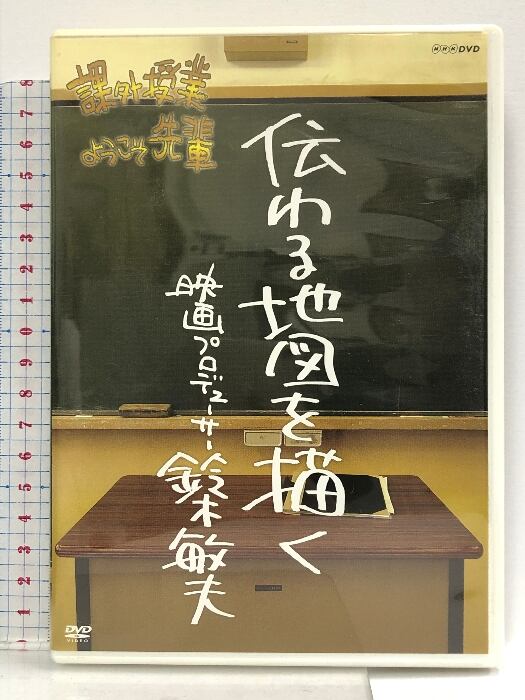 NHK DVD
課外授業
ようこそ先輩
伝わる地図を描く
映画プロデューサー 鈴木敏夫
DVD
VIDEO
8
7
6
5
4
3
2
1
0
9
8
7
6
5
4
3
2
1